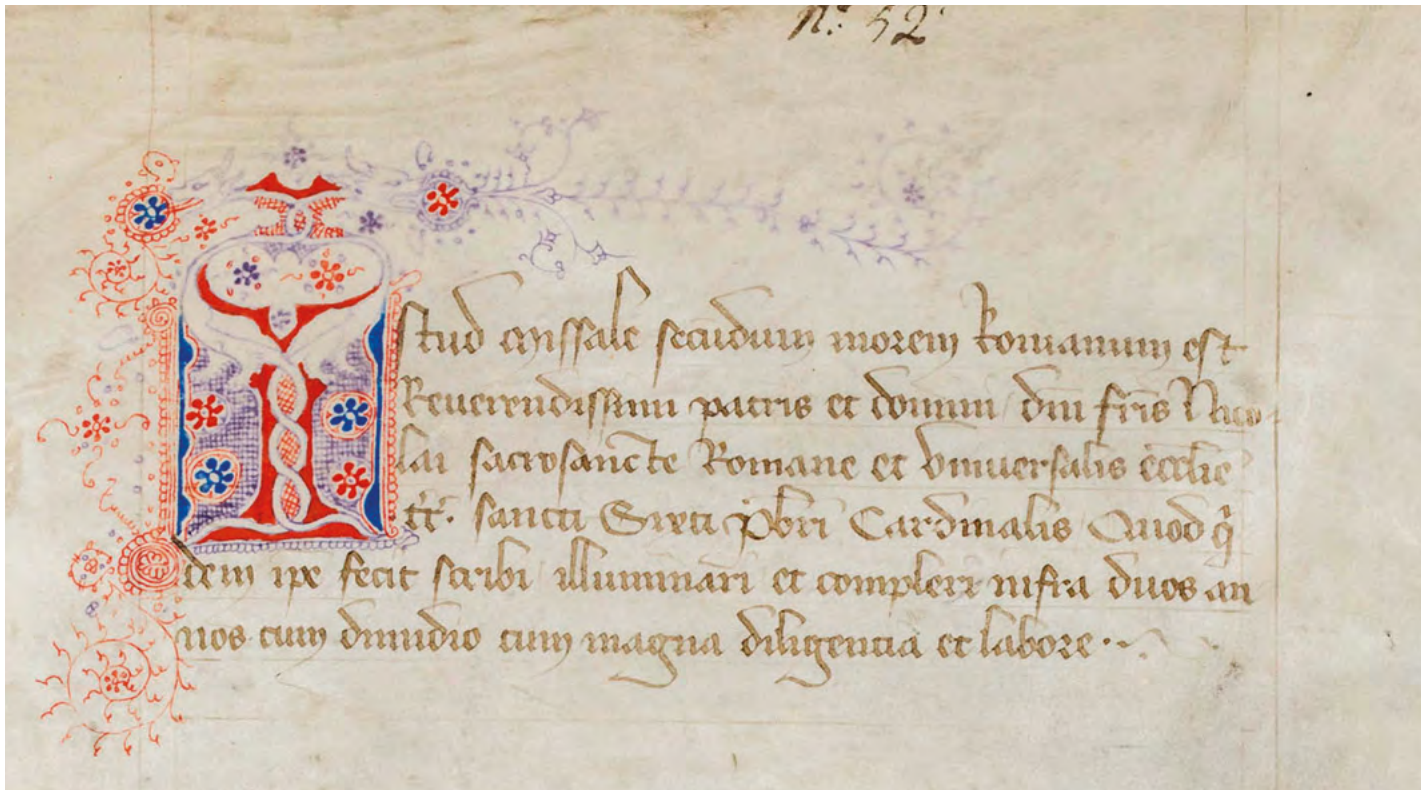 n.º 52
Istud missale secūdum morem Romanum est
Reuerendissimi patris et domini dm̄ fr̄is Nico-
lai sacrosancte Romane et vniuersalis eccl̄ie
tt̄. sancti Sixti p̄br̄i Cardinalis Quod q̄
dem ip̄e fecit scribi illuminari et compleri infra duos an
nos cum dimidio cum magna diligencia et labore.